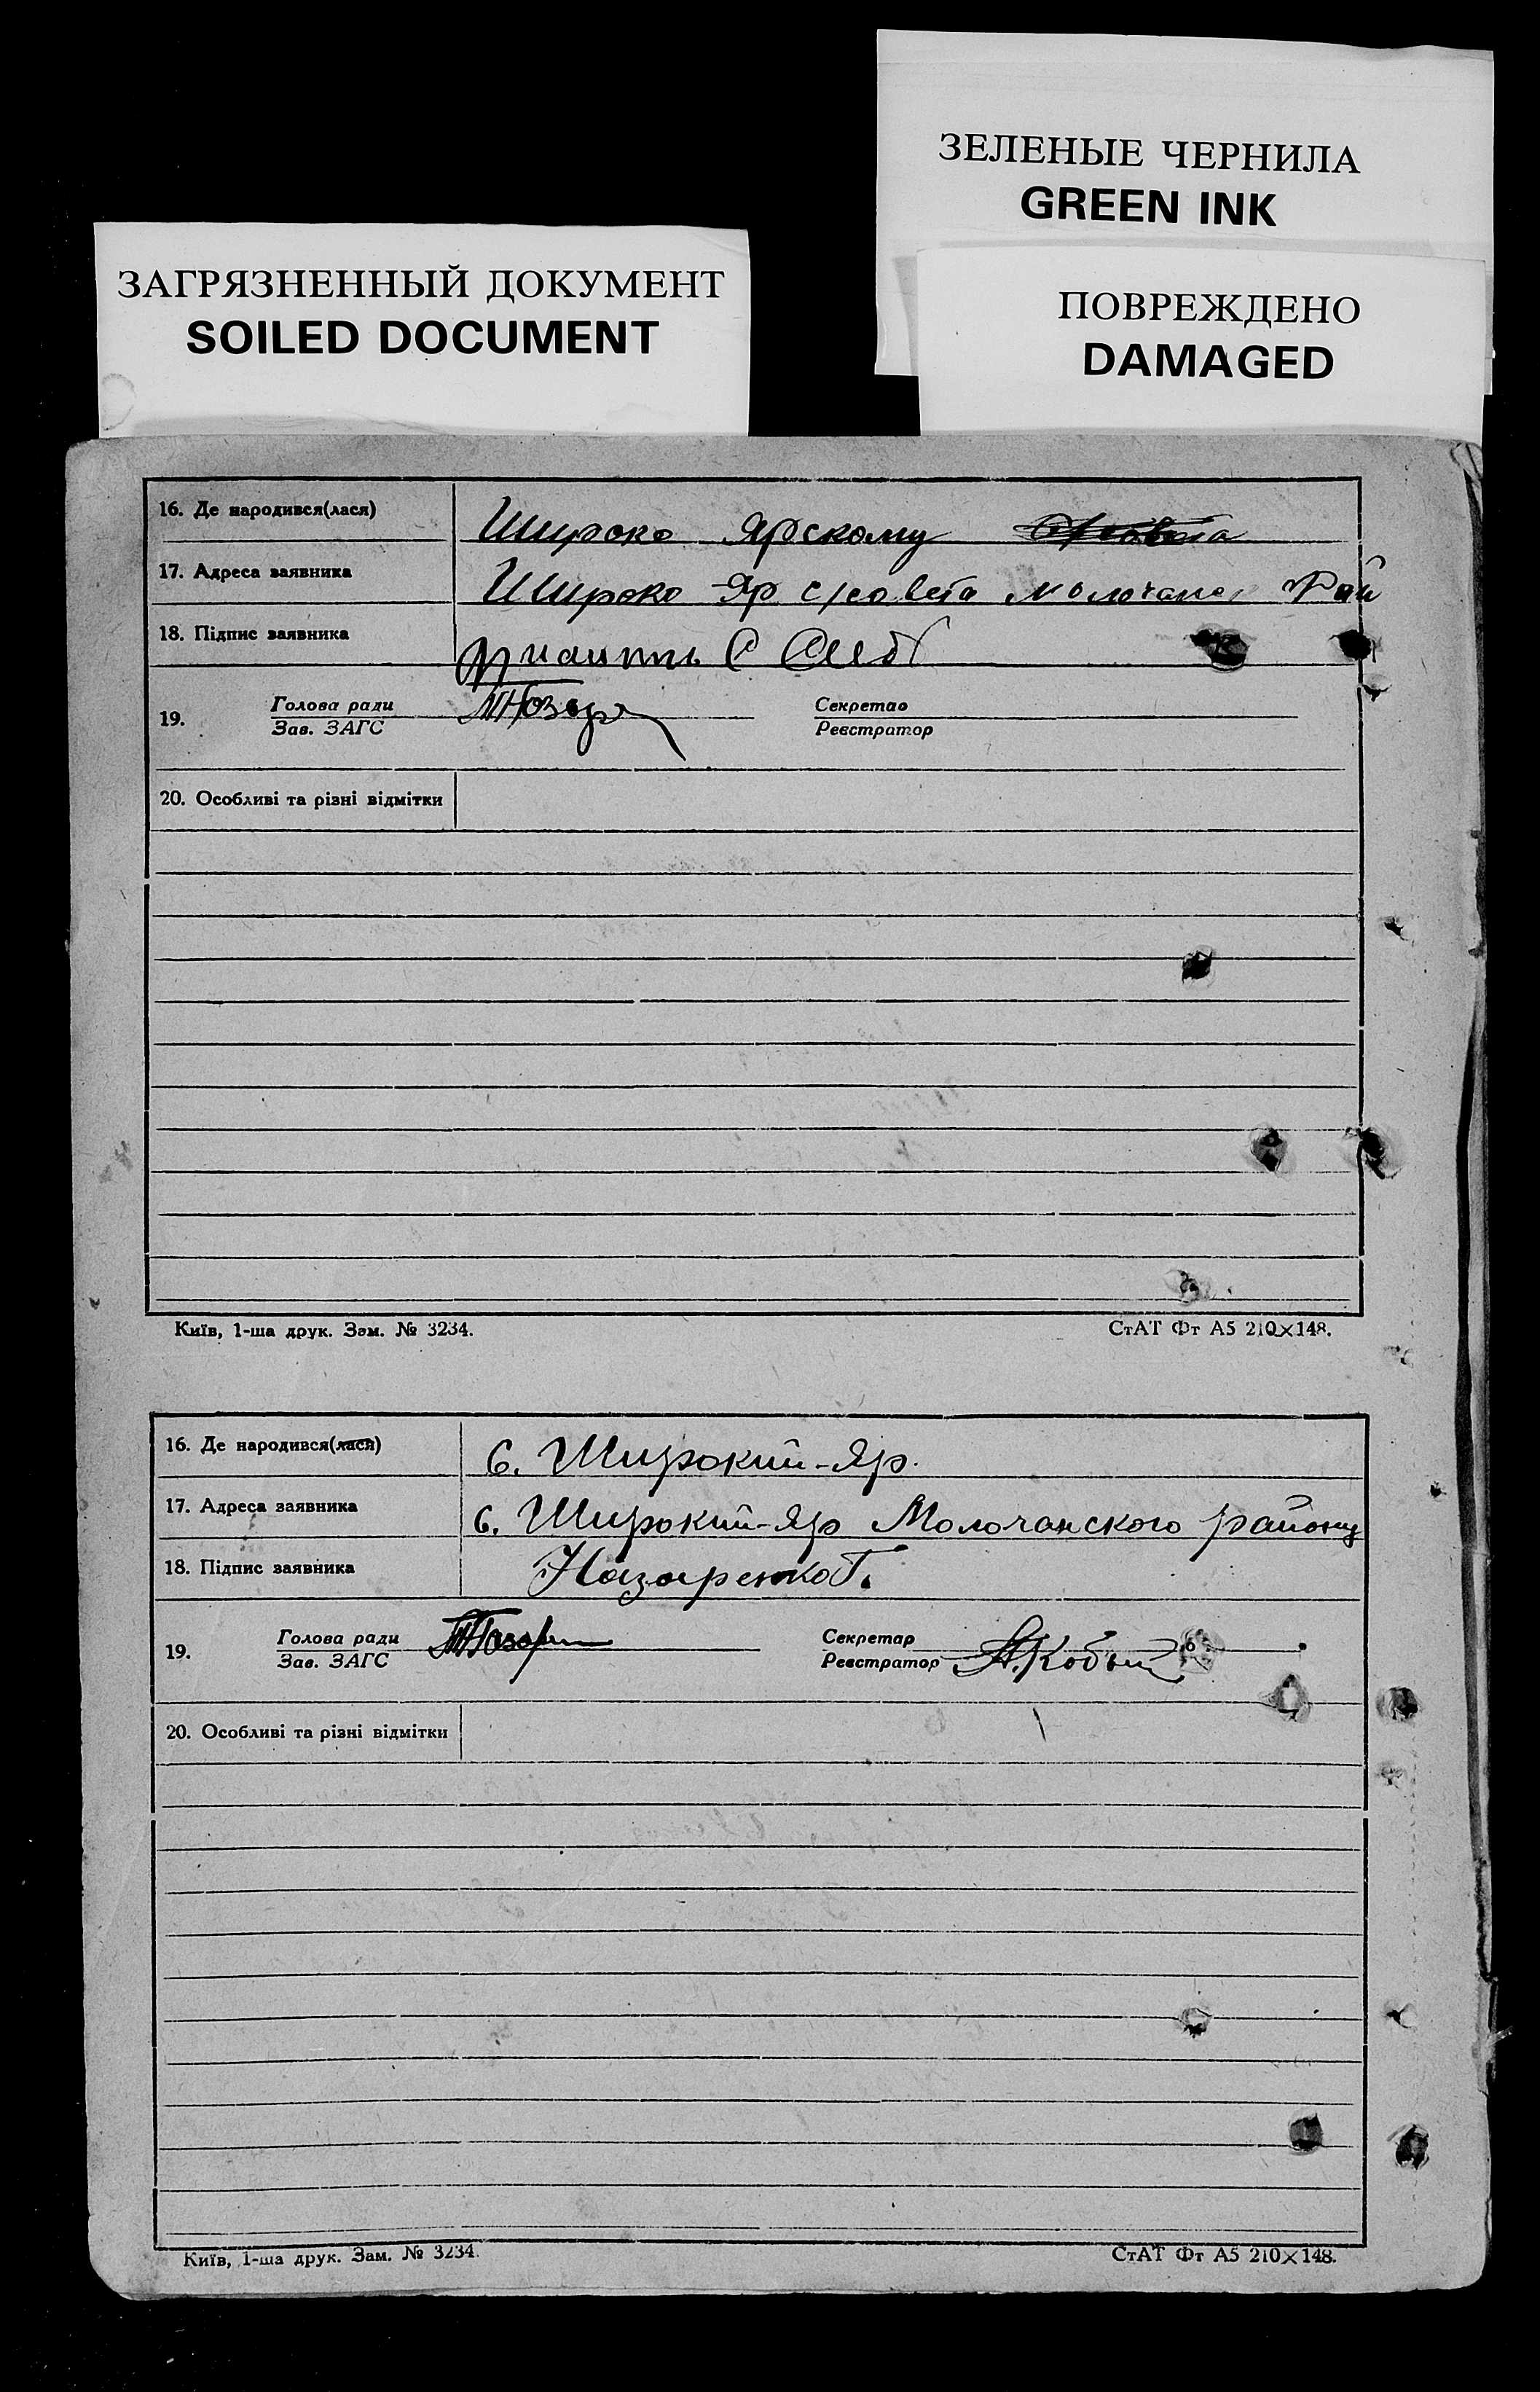 ЗЕЛЕНЫЕ ЧЕРНИЛА
GREEN INK
ЗАГРЯЗНЕННЫЙ ДОКУМЕНТ
SOILED DOCUMENT
ПОВРЕЖДЕНО
DAMAGED
16. Де народився(лася) Широко Ярскому
17. Адреса заявника Широко Яр с/совета Рай
18. Підпис заявника
19. Голова ради Секретар
Зав. ЗАГС Реєстратор
20. Особливі та різні відмітки
Київ, 1-ша друк. Зам. № 3234. СтАТ Фт А5 210×148.
16. Де народився(лася) с. Широкий-Яр.
17. Адреса заявника с. Широкий-Яр Молочанского району
18. Підпис заявника Назаренко Г.
19. Голова ради Секретар
Зав. ЗАГС Реєстратор
20. Особливі та різні відмітки
Київ, 1-ша друк. Зам. № 3234. СтАТ Фт А5 210×148.